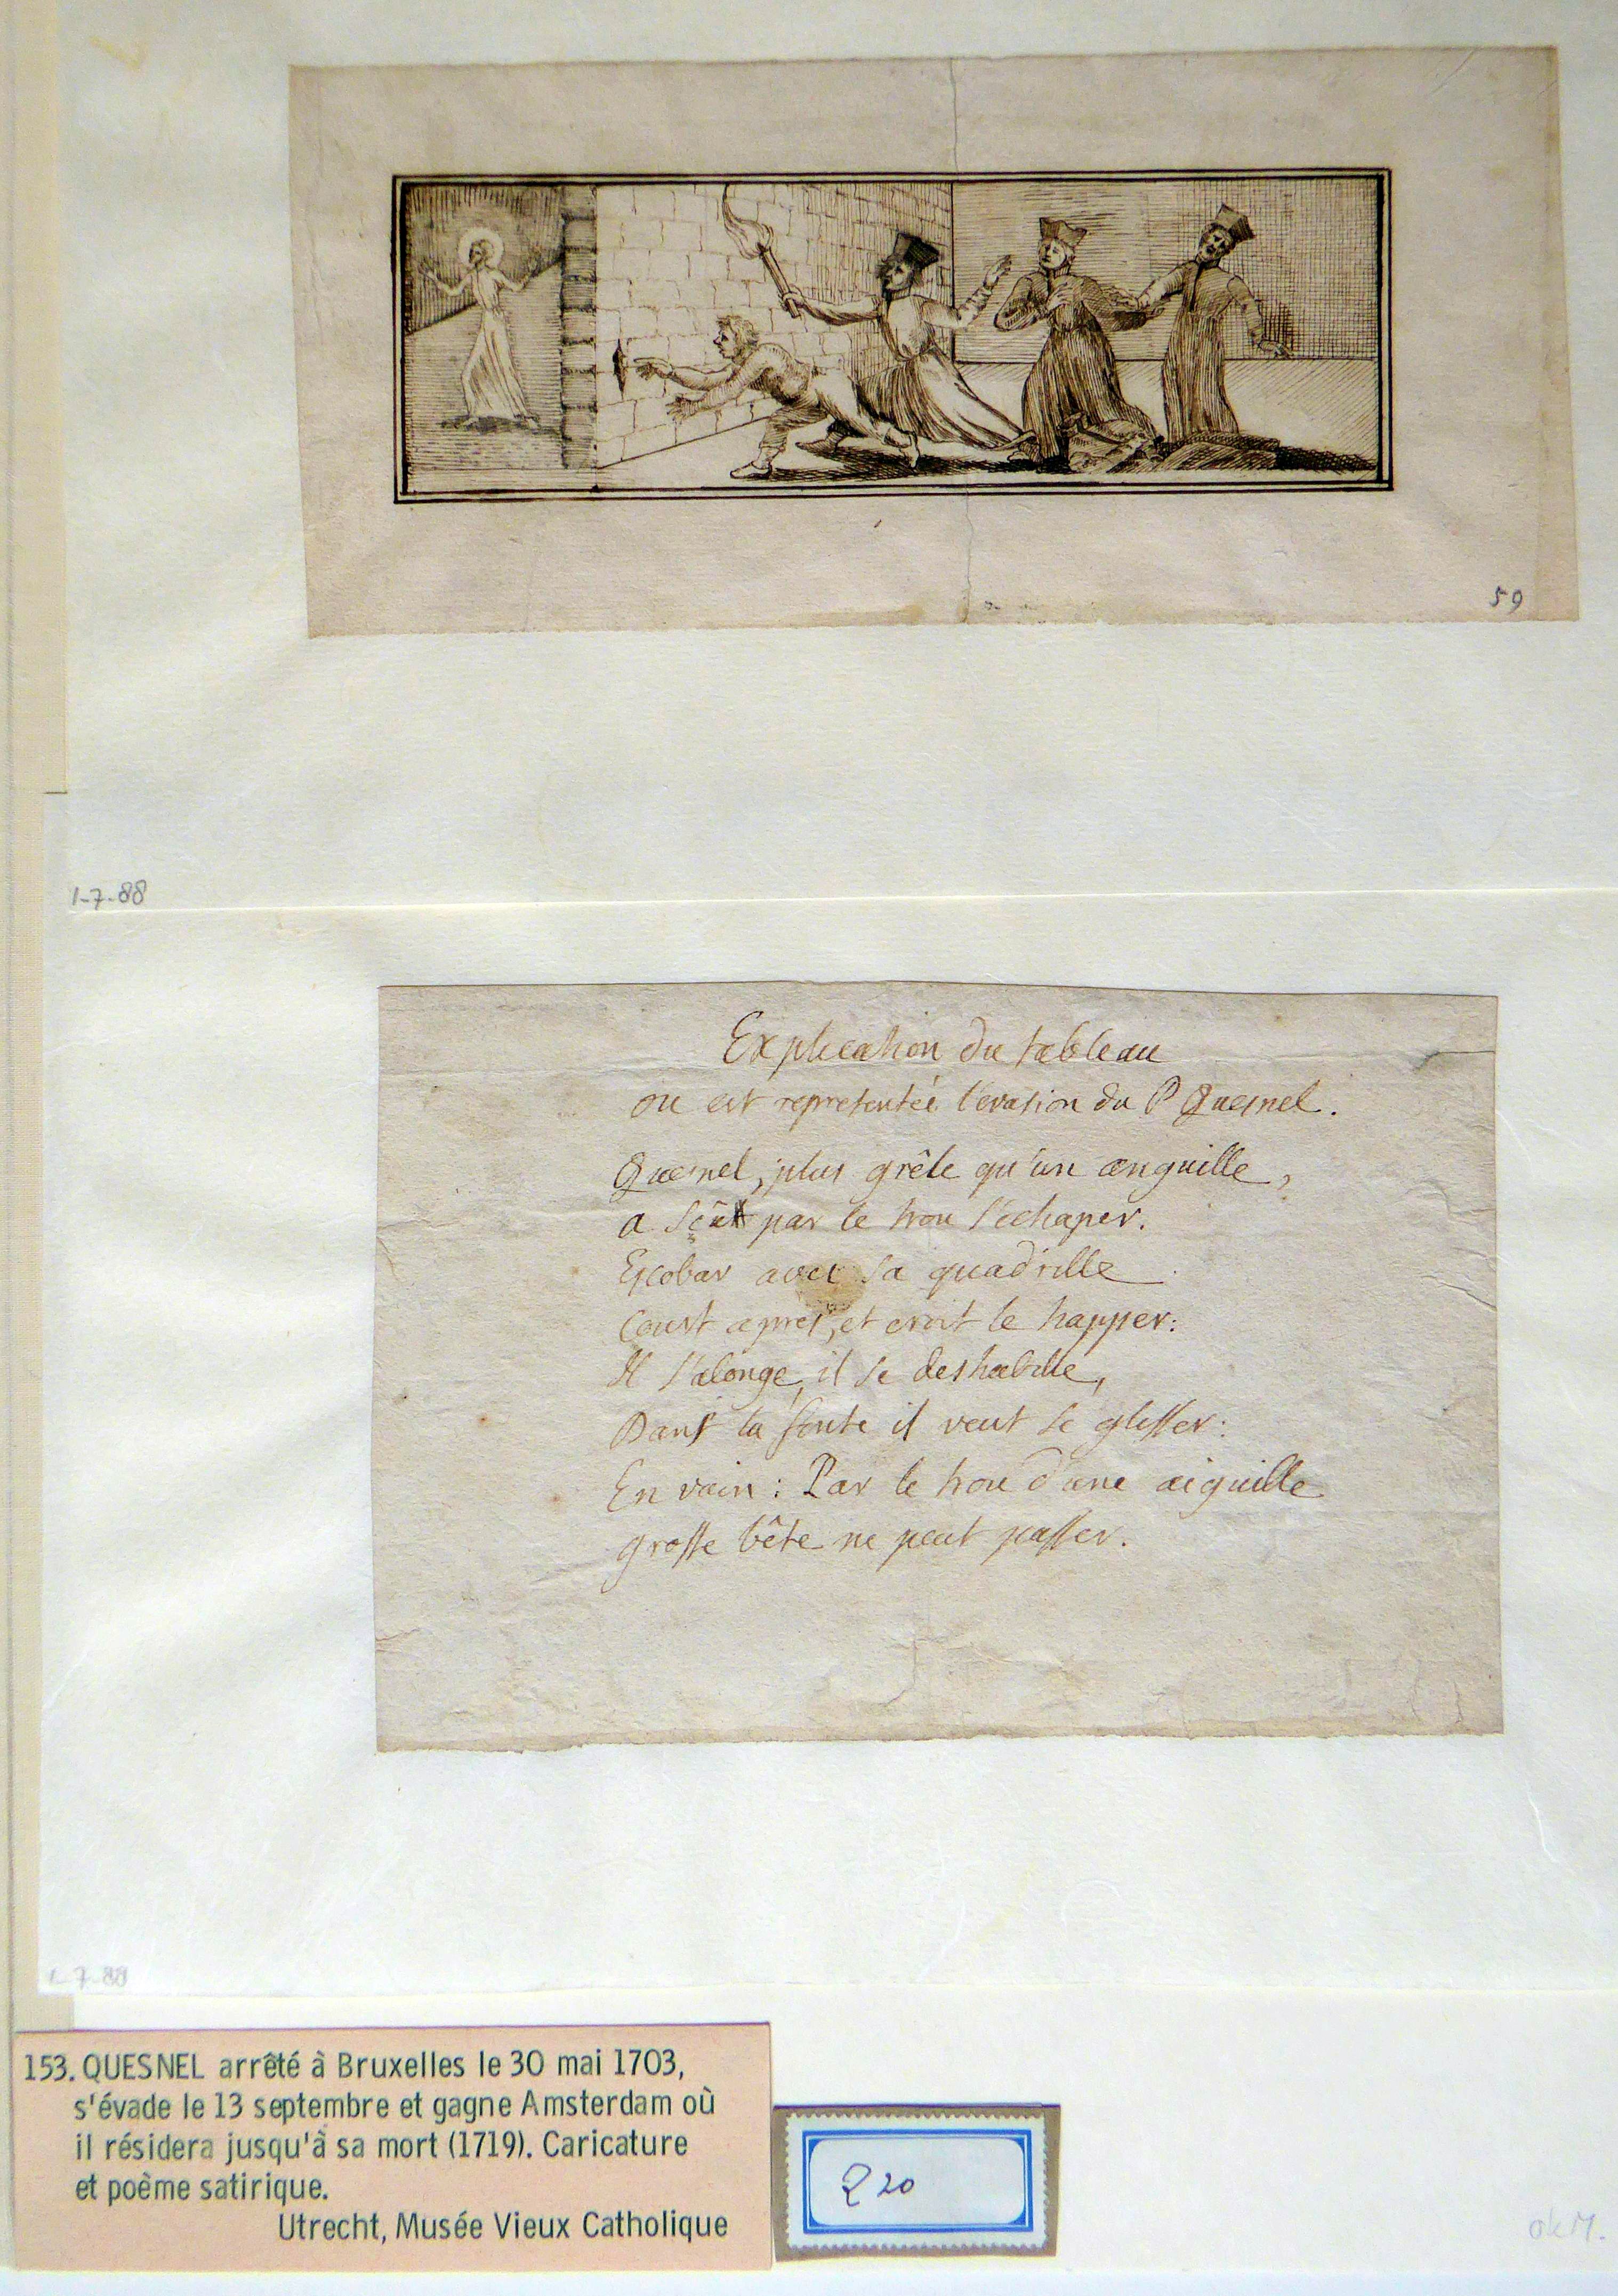 59
1-7-88
Explication du tableau
ou est representée l'evasion du P Quesnel.
Quesnel, plus grêle qu'un anguille,
a sçû par le trou s'echaper.
Escobar avec sa quadrille
Court apres, et croit le happer:
Il s'alonge, il se deshabille,
Dans la fente il veut se glisser:
En vain: Par le trou d'une aiguille
grosse bête ne peut passer.
1-7-88
153. QUESNEL arrêté à Bruxelles le 30 mai 1703,
s'évade le 13 septembre et gagne Amsterdam où
il résidera jusqu'à sa mort (1719). Caricature
et poème satirique.
Utrecht, Musée Vieux Catholique
220
okM.